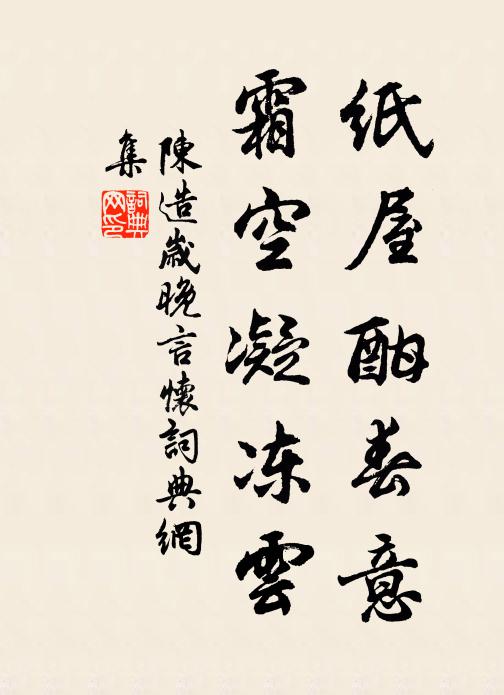 紙屋酣春意
霜空凝冻雲
陳造歲晚言懷詞典網
集
詞典网印